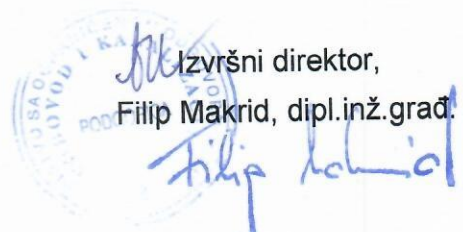 Izvršni direktor,
Filip Makrid, dipl.inž.građ.
Filip Makrid